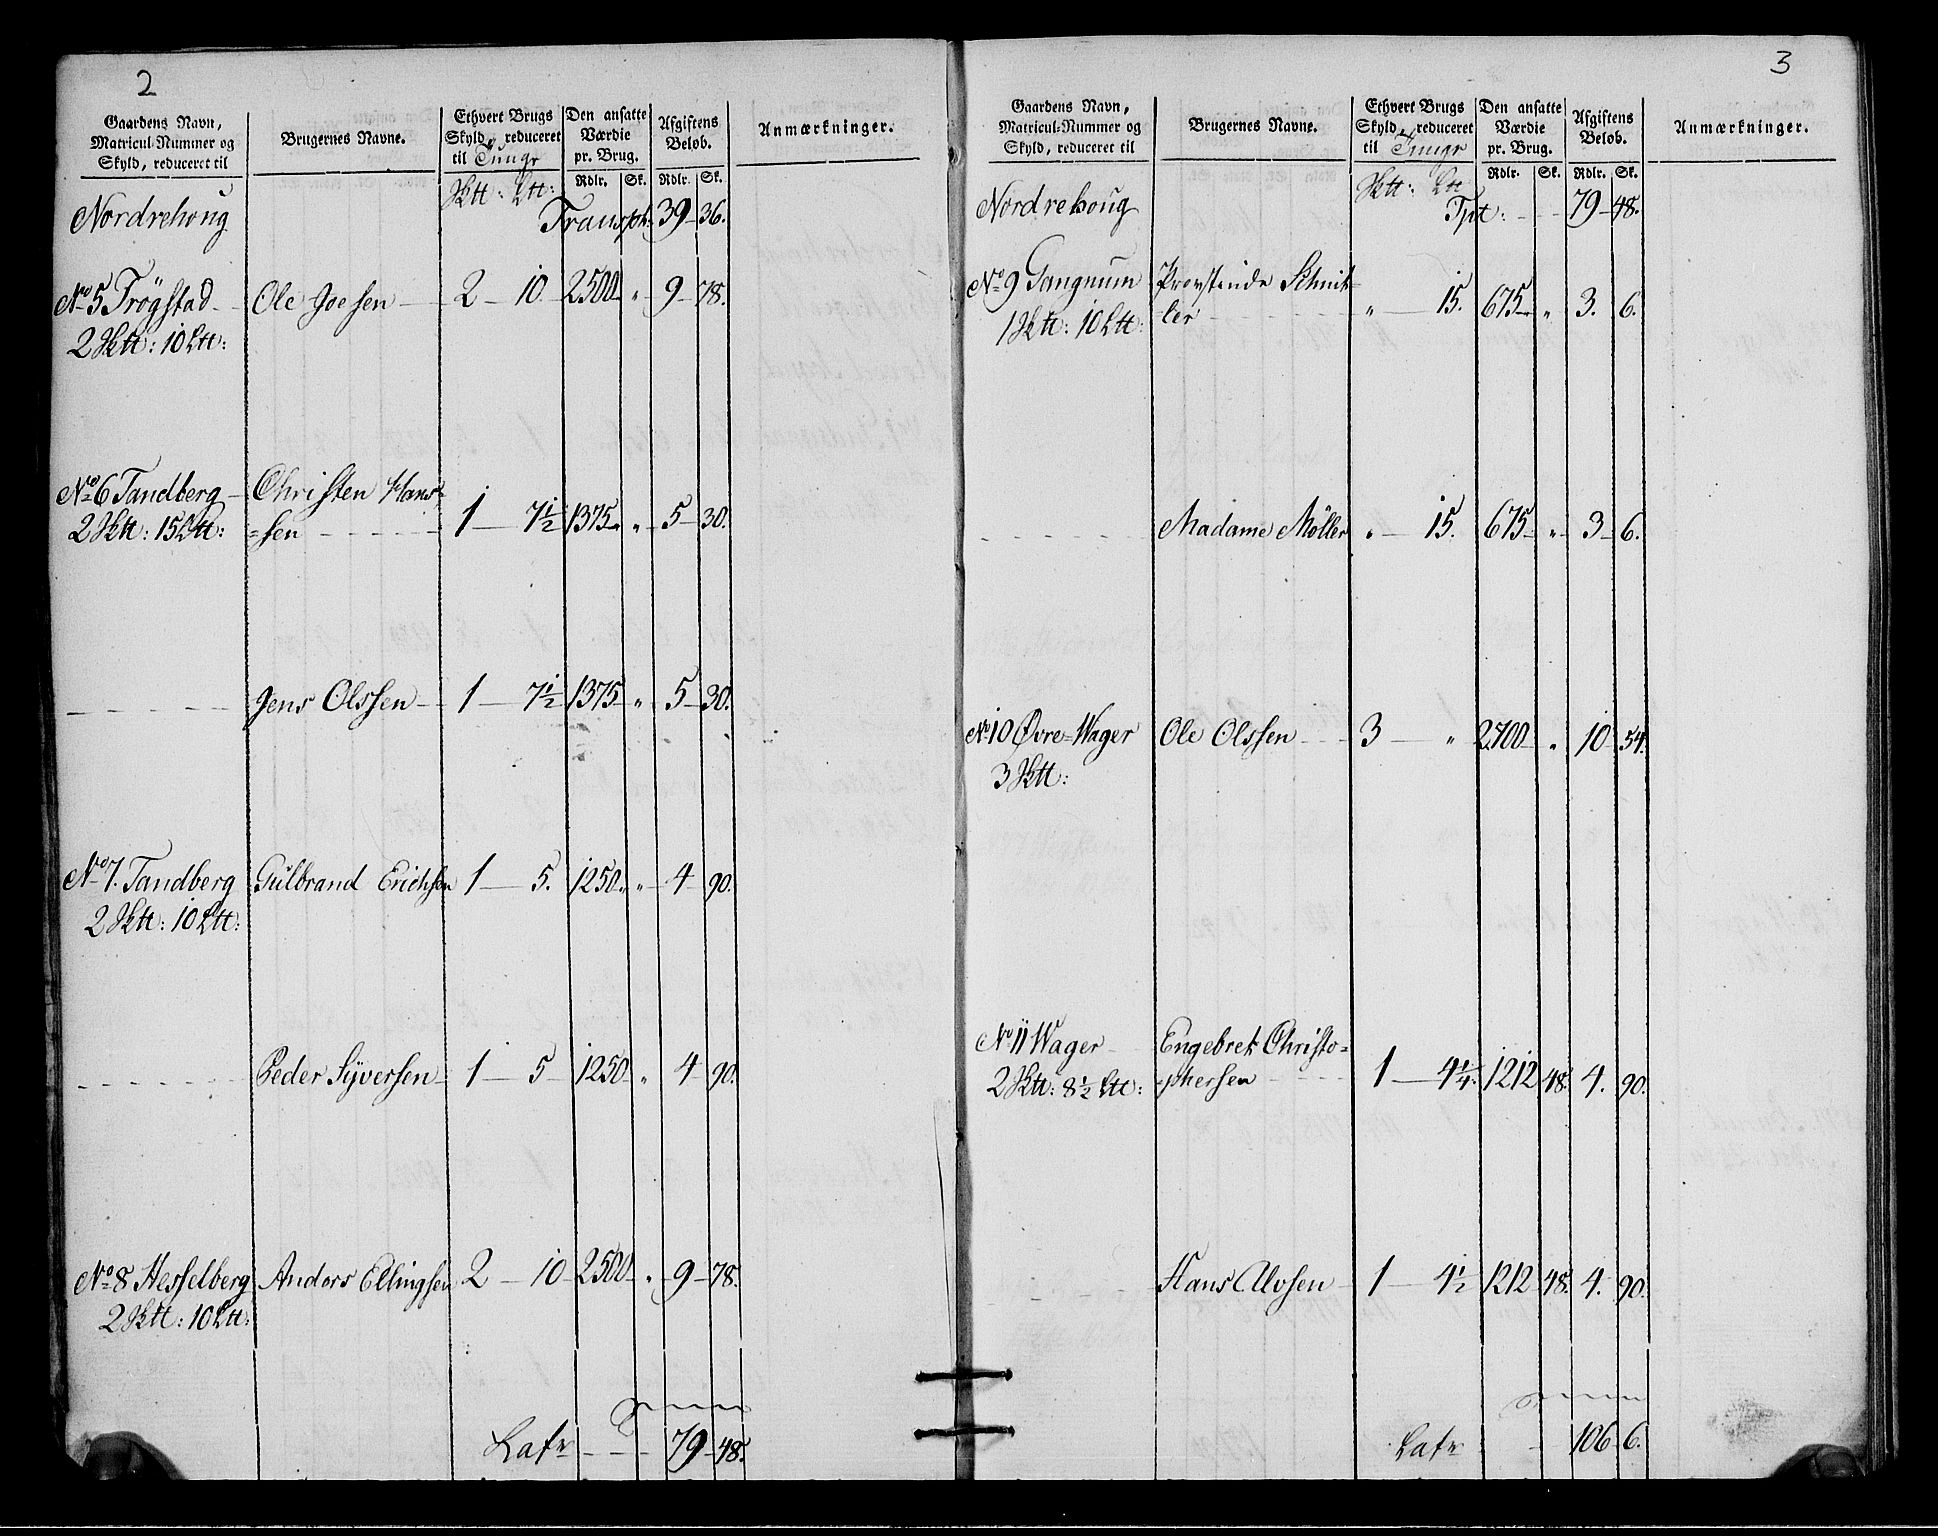 2
Gaardens Navn, Matricul-Nummer og Skyld, reduceret til
Brugernes Navne.
Ethvert Brugs Skyld, reduceret til Tunge
Den ansatte Værdie pr. Brug.
Afgiftens Beløb.
Anmærkninger.
Rdlr. Sk. Rdlr. Sk.
Nordrehoug Transpt: 39 – 36.
No 5 Trögstad Ole Joesen 2 – 10 2500 „ 9 – 78.
No 6 Tandberg Christen Hans=
=sen 1 – 7½ 1375 „ 5 – 30.
Jens Olssen 1 – 7½ 1375 „ 5 – 30.
No 7. Tandberg Gulbrand Erichsen 1 – 5. 1250 „ 4 – 90.
Peder Syversen 1 – 5 1250 „ 4 – 90.
No 8 Hesselberg Anders Ellingsen 2 – 10 2500 „ 9 – 78.
Latr 79 – 48.
3
Gaardens Navn, Matricul-Nummer og Skyld, reduceret til
Brugernes Navne.
Ethvert Brugs Skyld, reduceret til Tunge
Den ansatte Værdie pr. Brug.
Afgiftens Beløb.
Anmærkninger.
Rdlr. Sk. Rdlr. Sk.
Nordrehoug Tpt: 79 – 48.
No 9 Tangnum Provstinde Schnit=
ler „ – 15. 675 „ 3. 6.
Madame Möller „ – 15. 675 „ 3 – 6.
No 10 Øvre=Wager Ole Olssen 3 – „ 2700 „ 10 54.
No 11 Wager Engebret Christo=
=phersen 1 – 4¼. 1212 48. 4. 90.
Hans Alvsen 1 – 4½ 1212 48. 4. 90.
Latr 106 – 6.